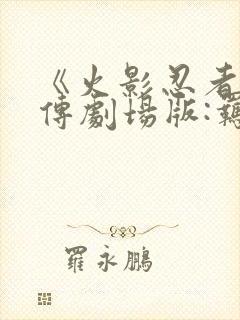 《火影忍者
傳劇場版:羈
羅永鵬